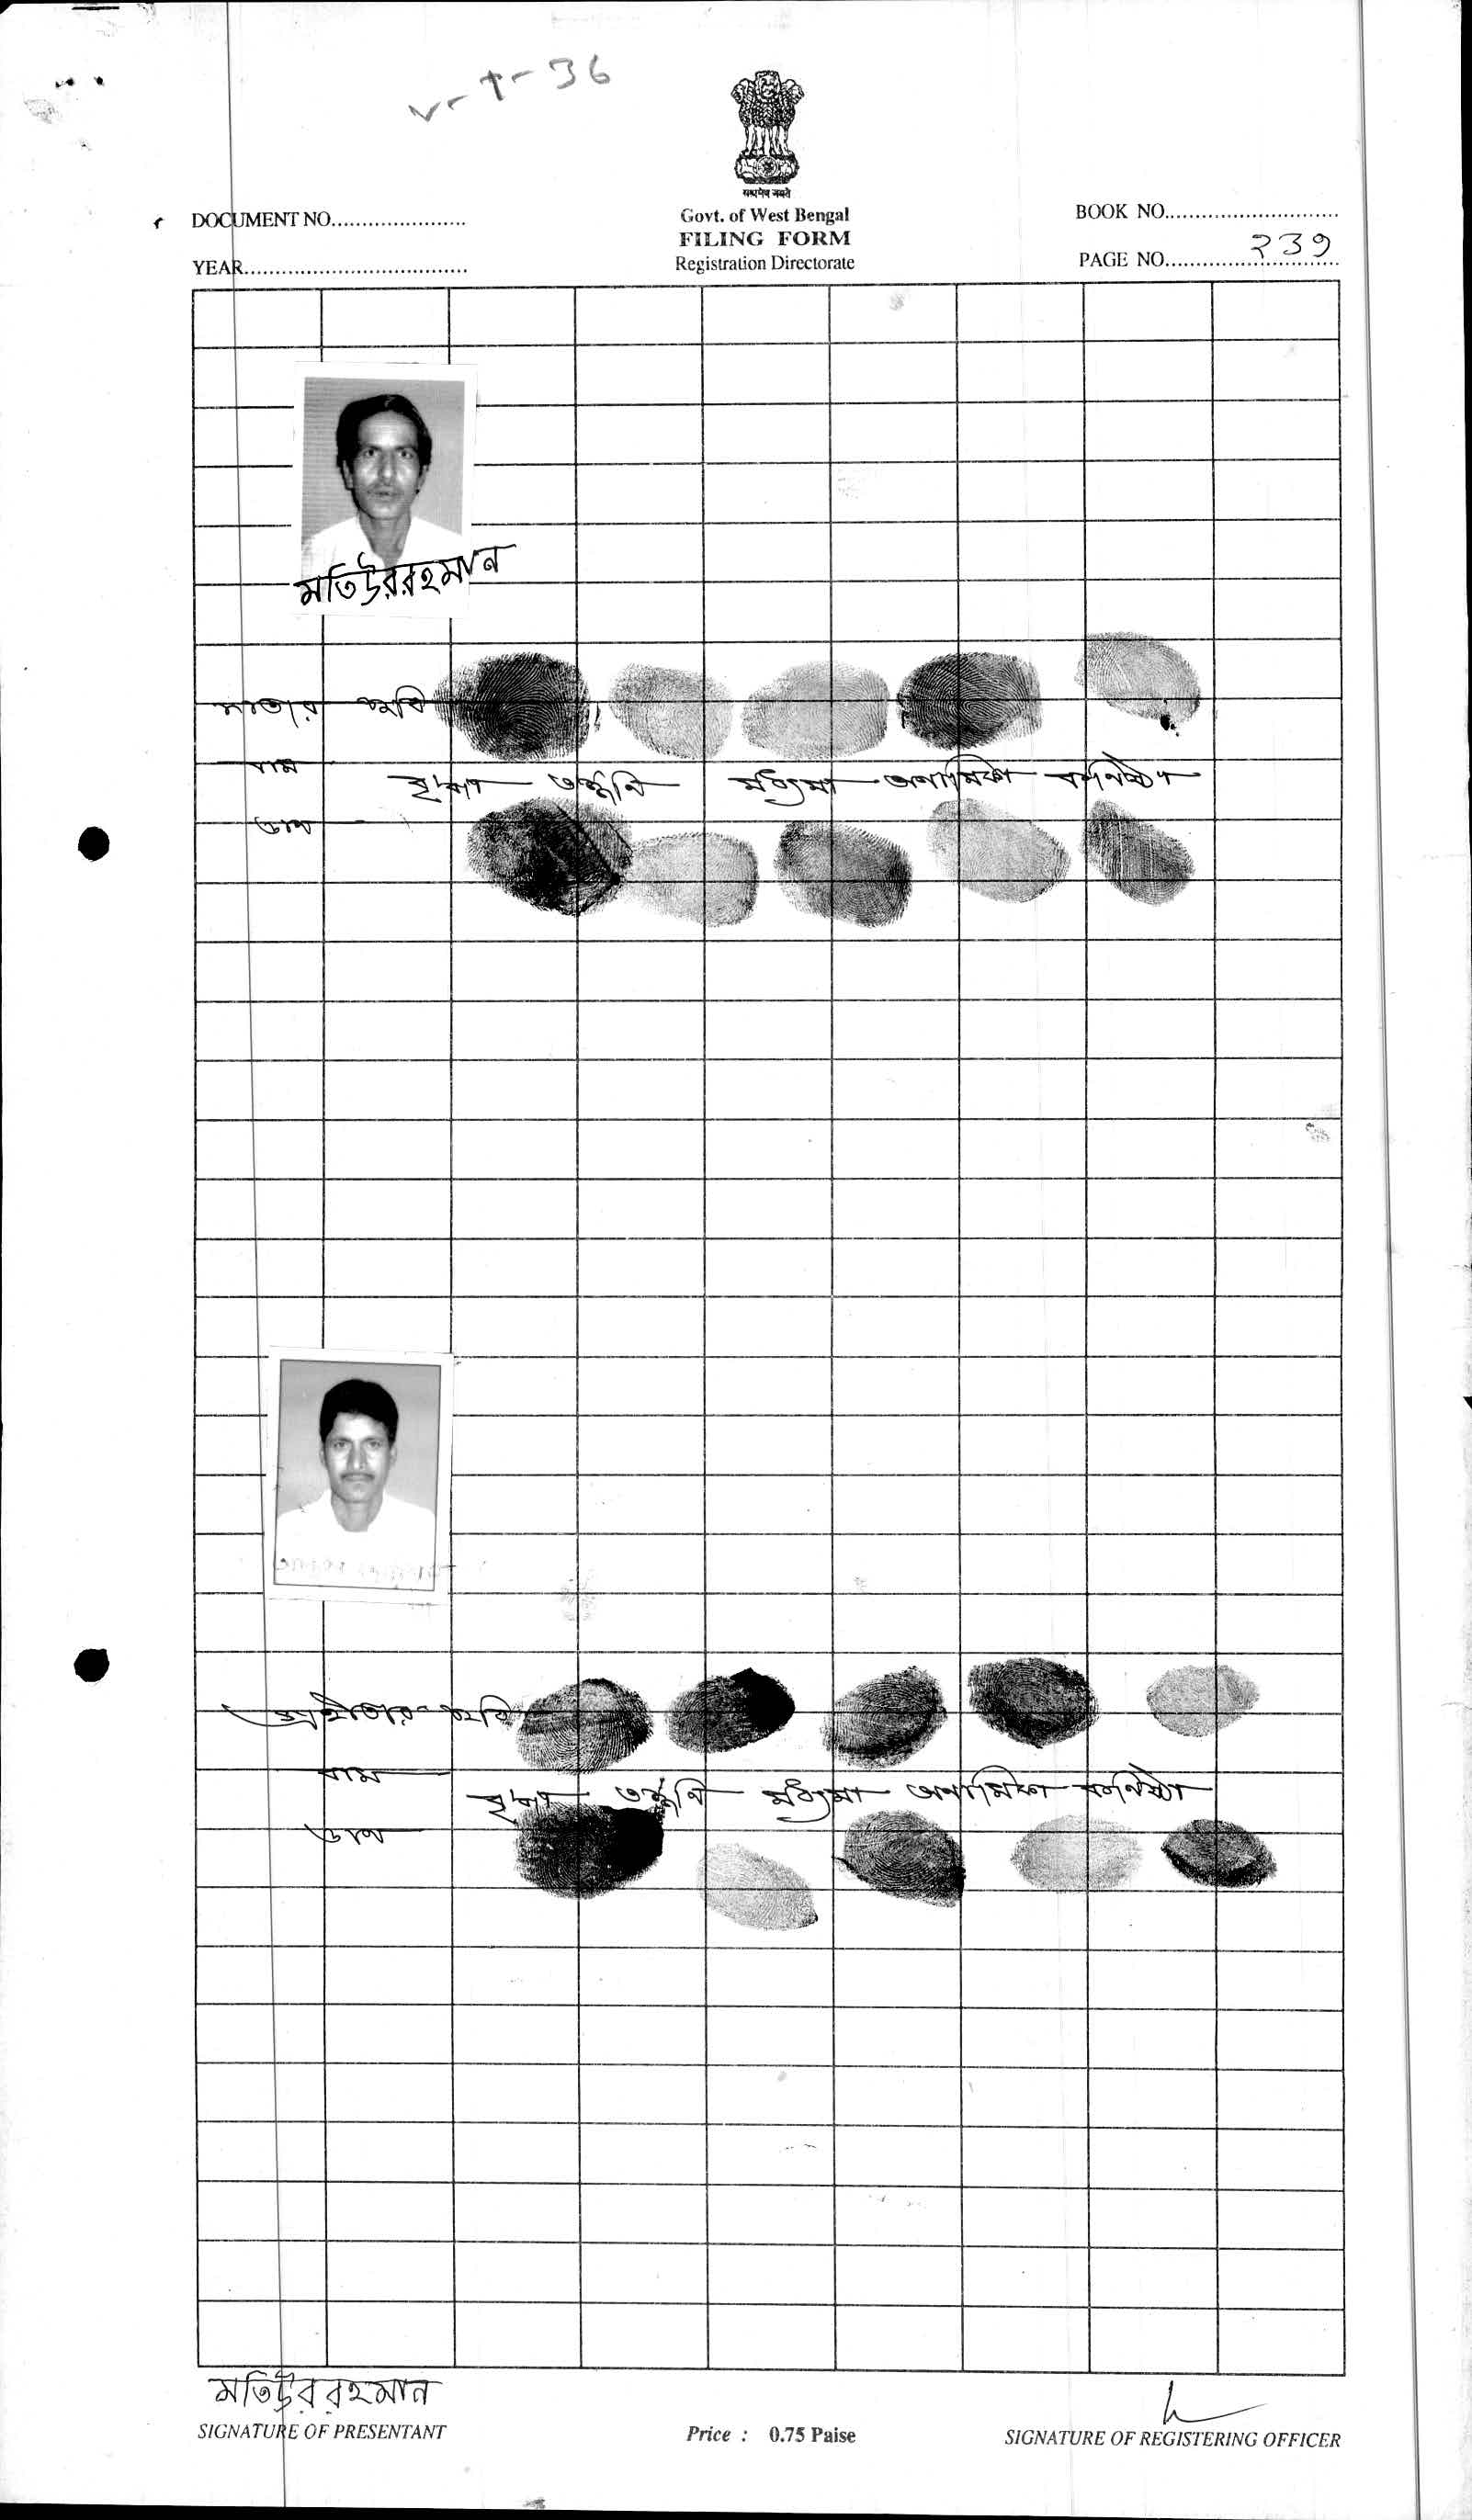 v-1-36
सत्यमेव जयते
Govt. of West Bengal
FILING FORM
Registration Directorate
DOCUMENT NO......................
YEAR.....................................
BOOK NO.............................
PAGE NO............................. 239
মতিউররহমান
দাতার ছবি
বাম
বৃদ্ধা তর্জ্জনি মধ্যমা অনামিকা কনিষ্ঠা
ডান
গ্রহীতার ছবি
বাম
বৃদ্ধা তর্জ্জনি মধ্যমা অনামিকা কনিষ্ঠা
ডান
মতিউররহমান
SIGNATURE OF PRESENTANT
Price : 0.75 Paise
SIGNATURE OF REGISTERING OFFICER